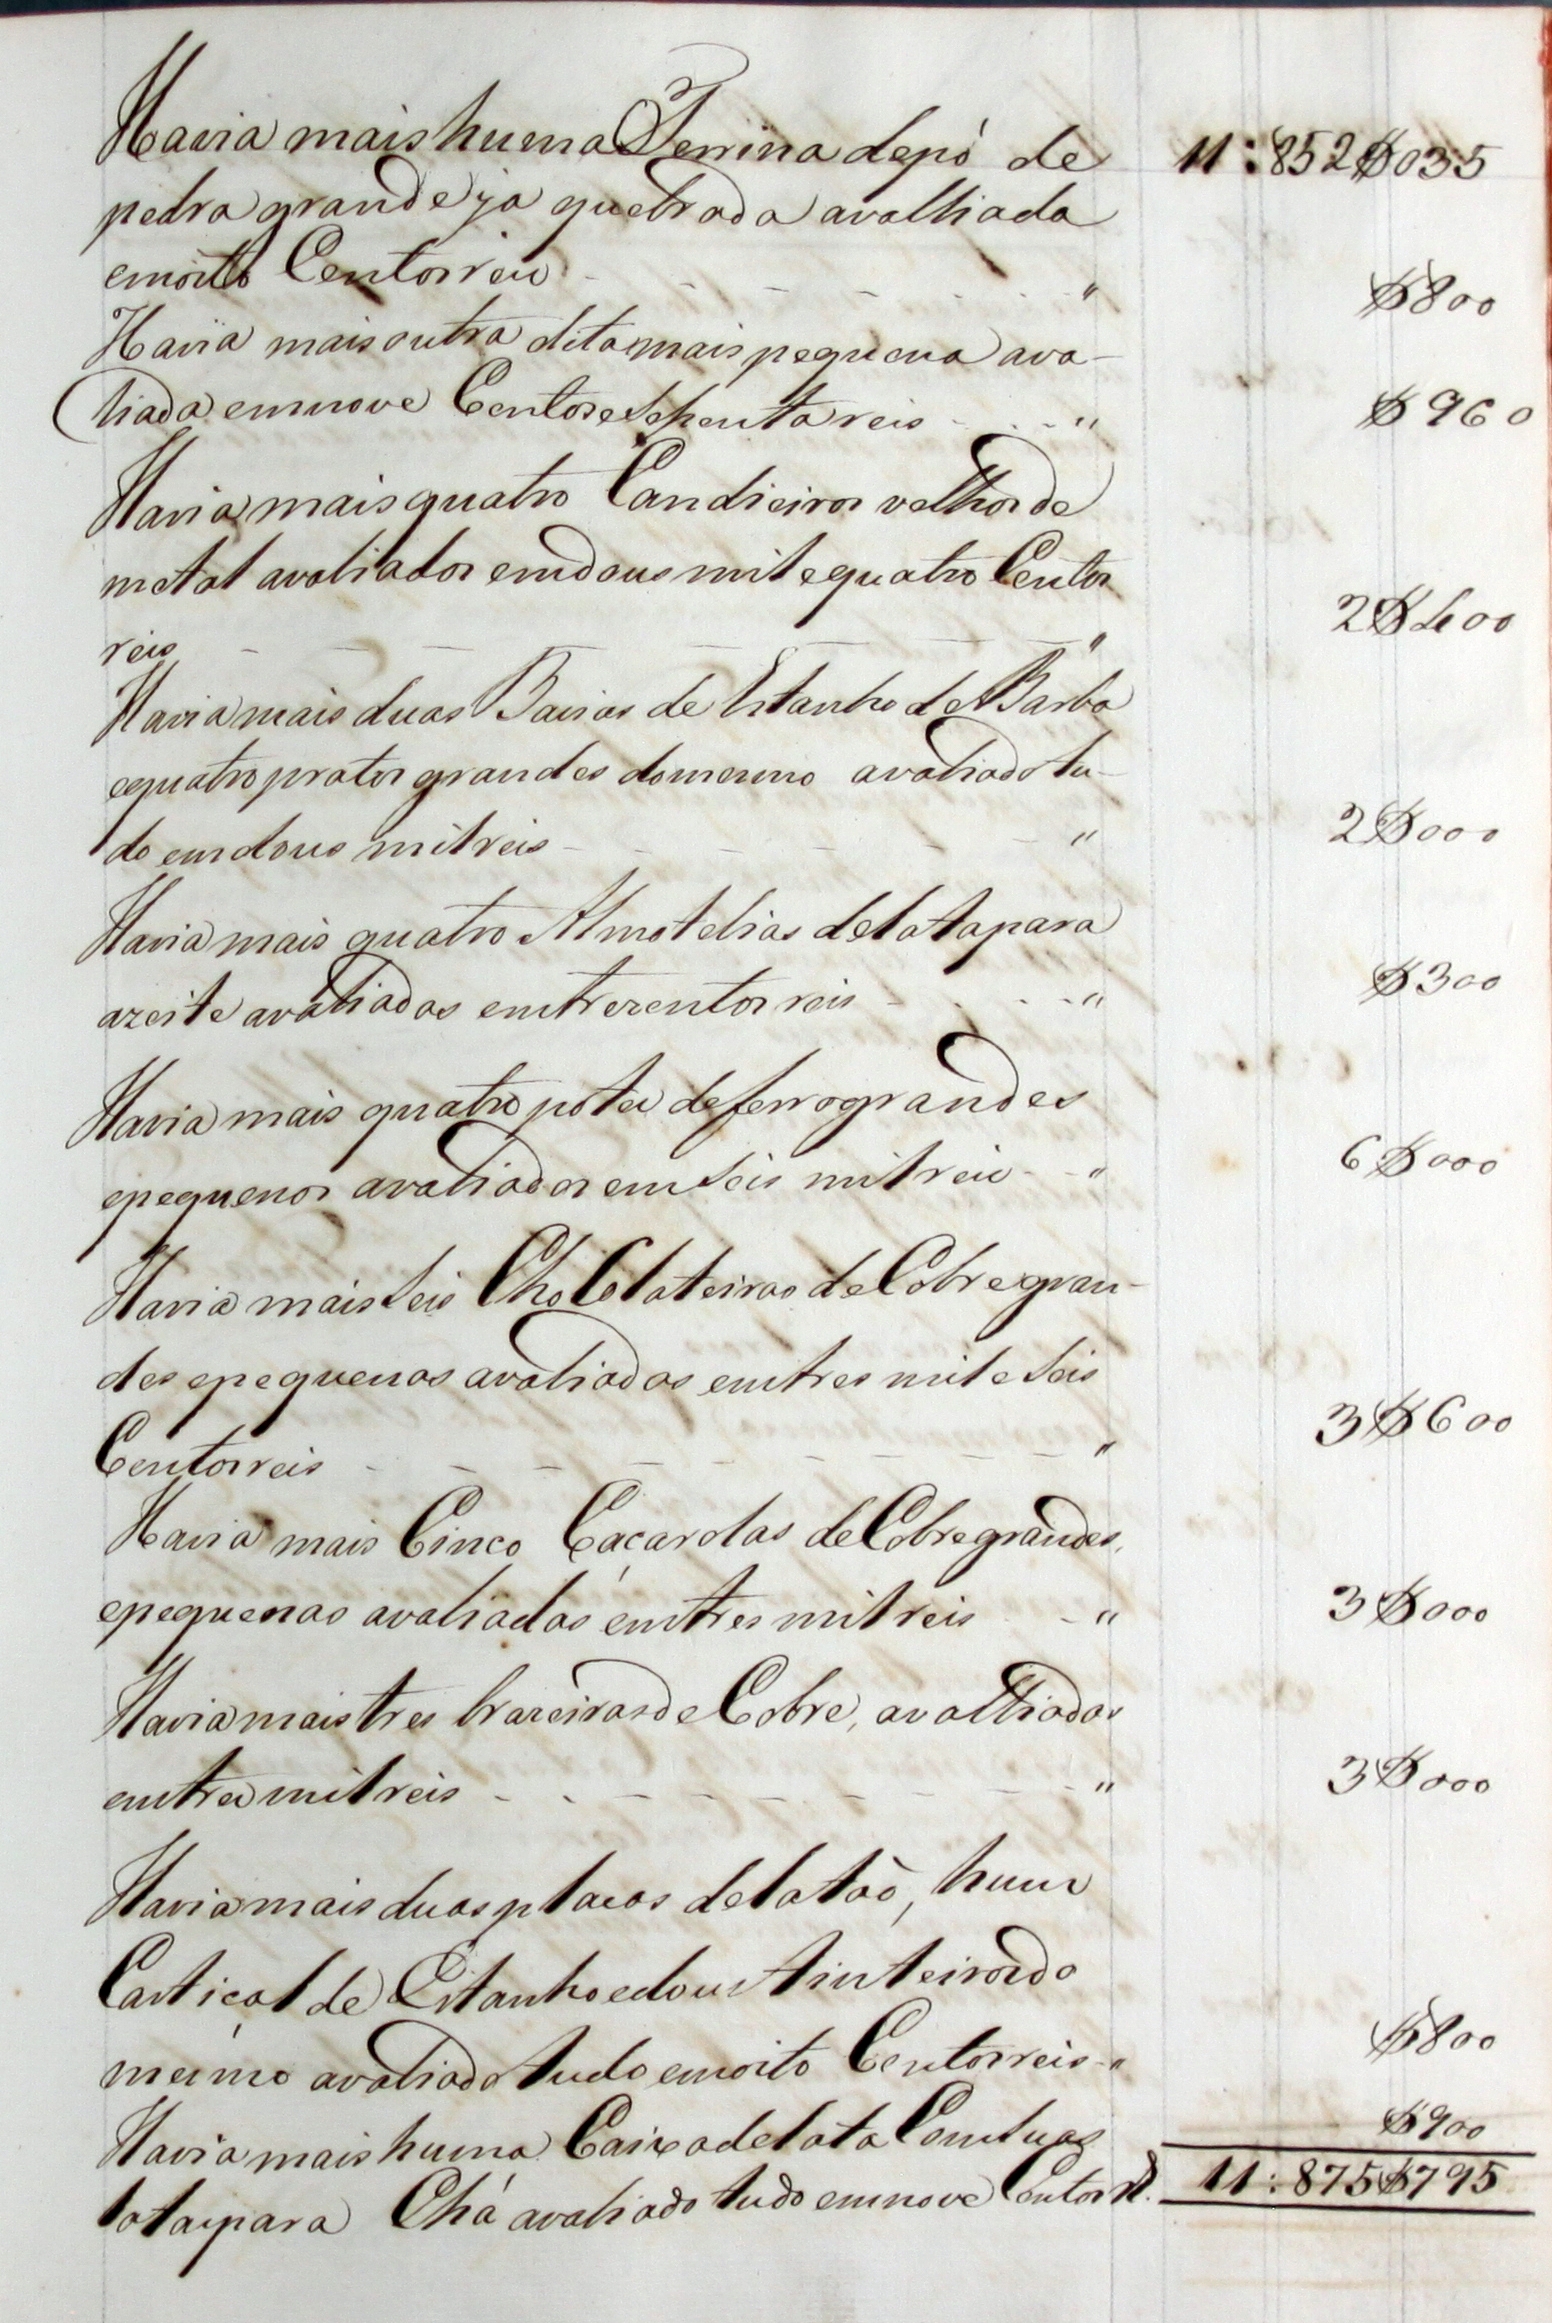 Havia mais huma Terrina de pó de 11:852$035
pedra grande ja quebrada avalliada
em oito Centos reis - - - - - - " $800
Havia mais outra dita mais pequena ava-
liada em nove Centos e Secenta reis - - - " $960
Havia mais quatro Candieiros velhos de
metal avaliados em dous mil e quatro Centos
reis - - - - - - - - " 2$400
Havia mais duas Bacias de Estanho de Barba
e quatro pratos grandes do mesmo avaliado tu-
do em dous mil reis - - - - - - " 2$000
Havia mais quatro Almotolias de lata para
azeite avaliadas em trezentos reis - - - - " $300
Havia mais quatro potes de ferro grandes
e pequenos avaliados em Seis mil reis - - " 6$000
Havia mais Seis ChoColateiras de Cobre gran-
des e pequenas avaliadas em tres mil e Seis
Centos reis - - - - - - - - " 3$600
Havia mais Cinco Caçarolas de Cobre grandes,
e pequenas avaliadas em tres mil reis - " 3$000
Havia mais tres brazeiras de Cobre, avalliadas
em tres mil reis - - - - - - - - " 3$000
Havia mais duas placas de latão, hum
Castiçal de Estanho e dous tinteiros do
mesmo avaliado tudo em oito Centos reis - " $800
Havia mais huma Caixa de lata Com duas $900
latas para Chá avaliado tudo em nove Centos rs. 11:875$795